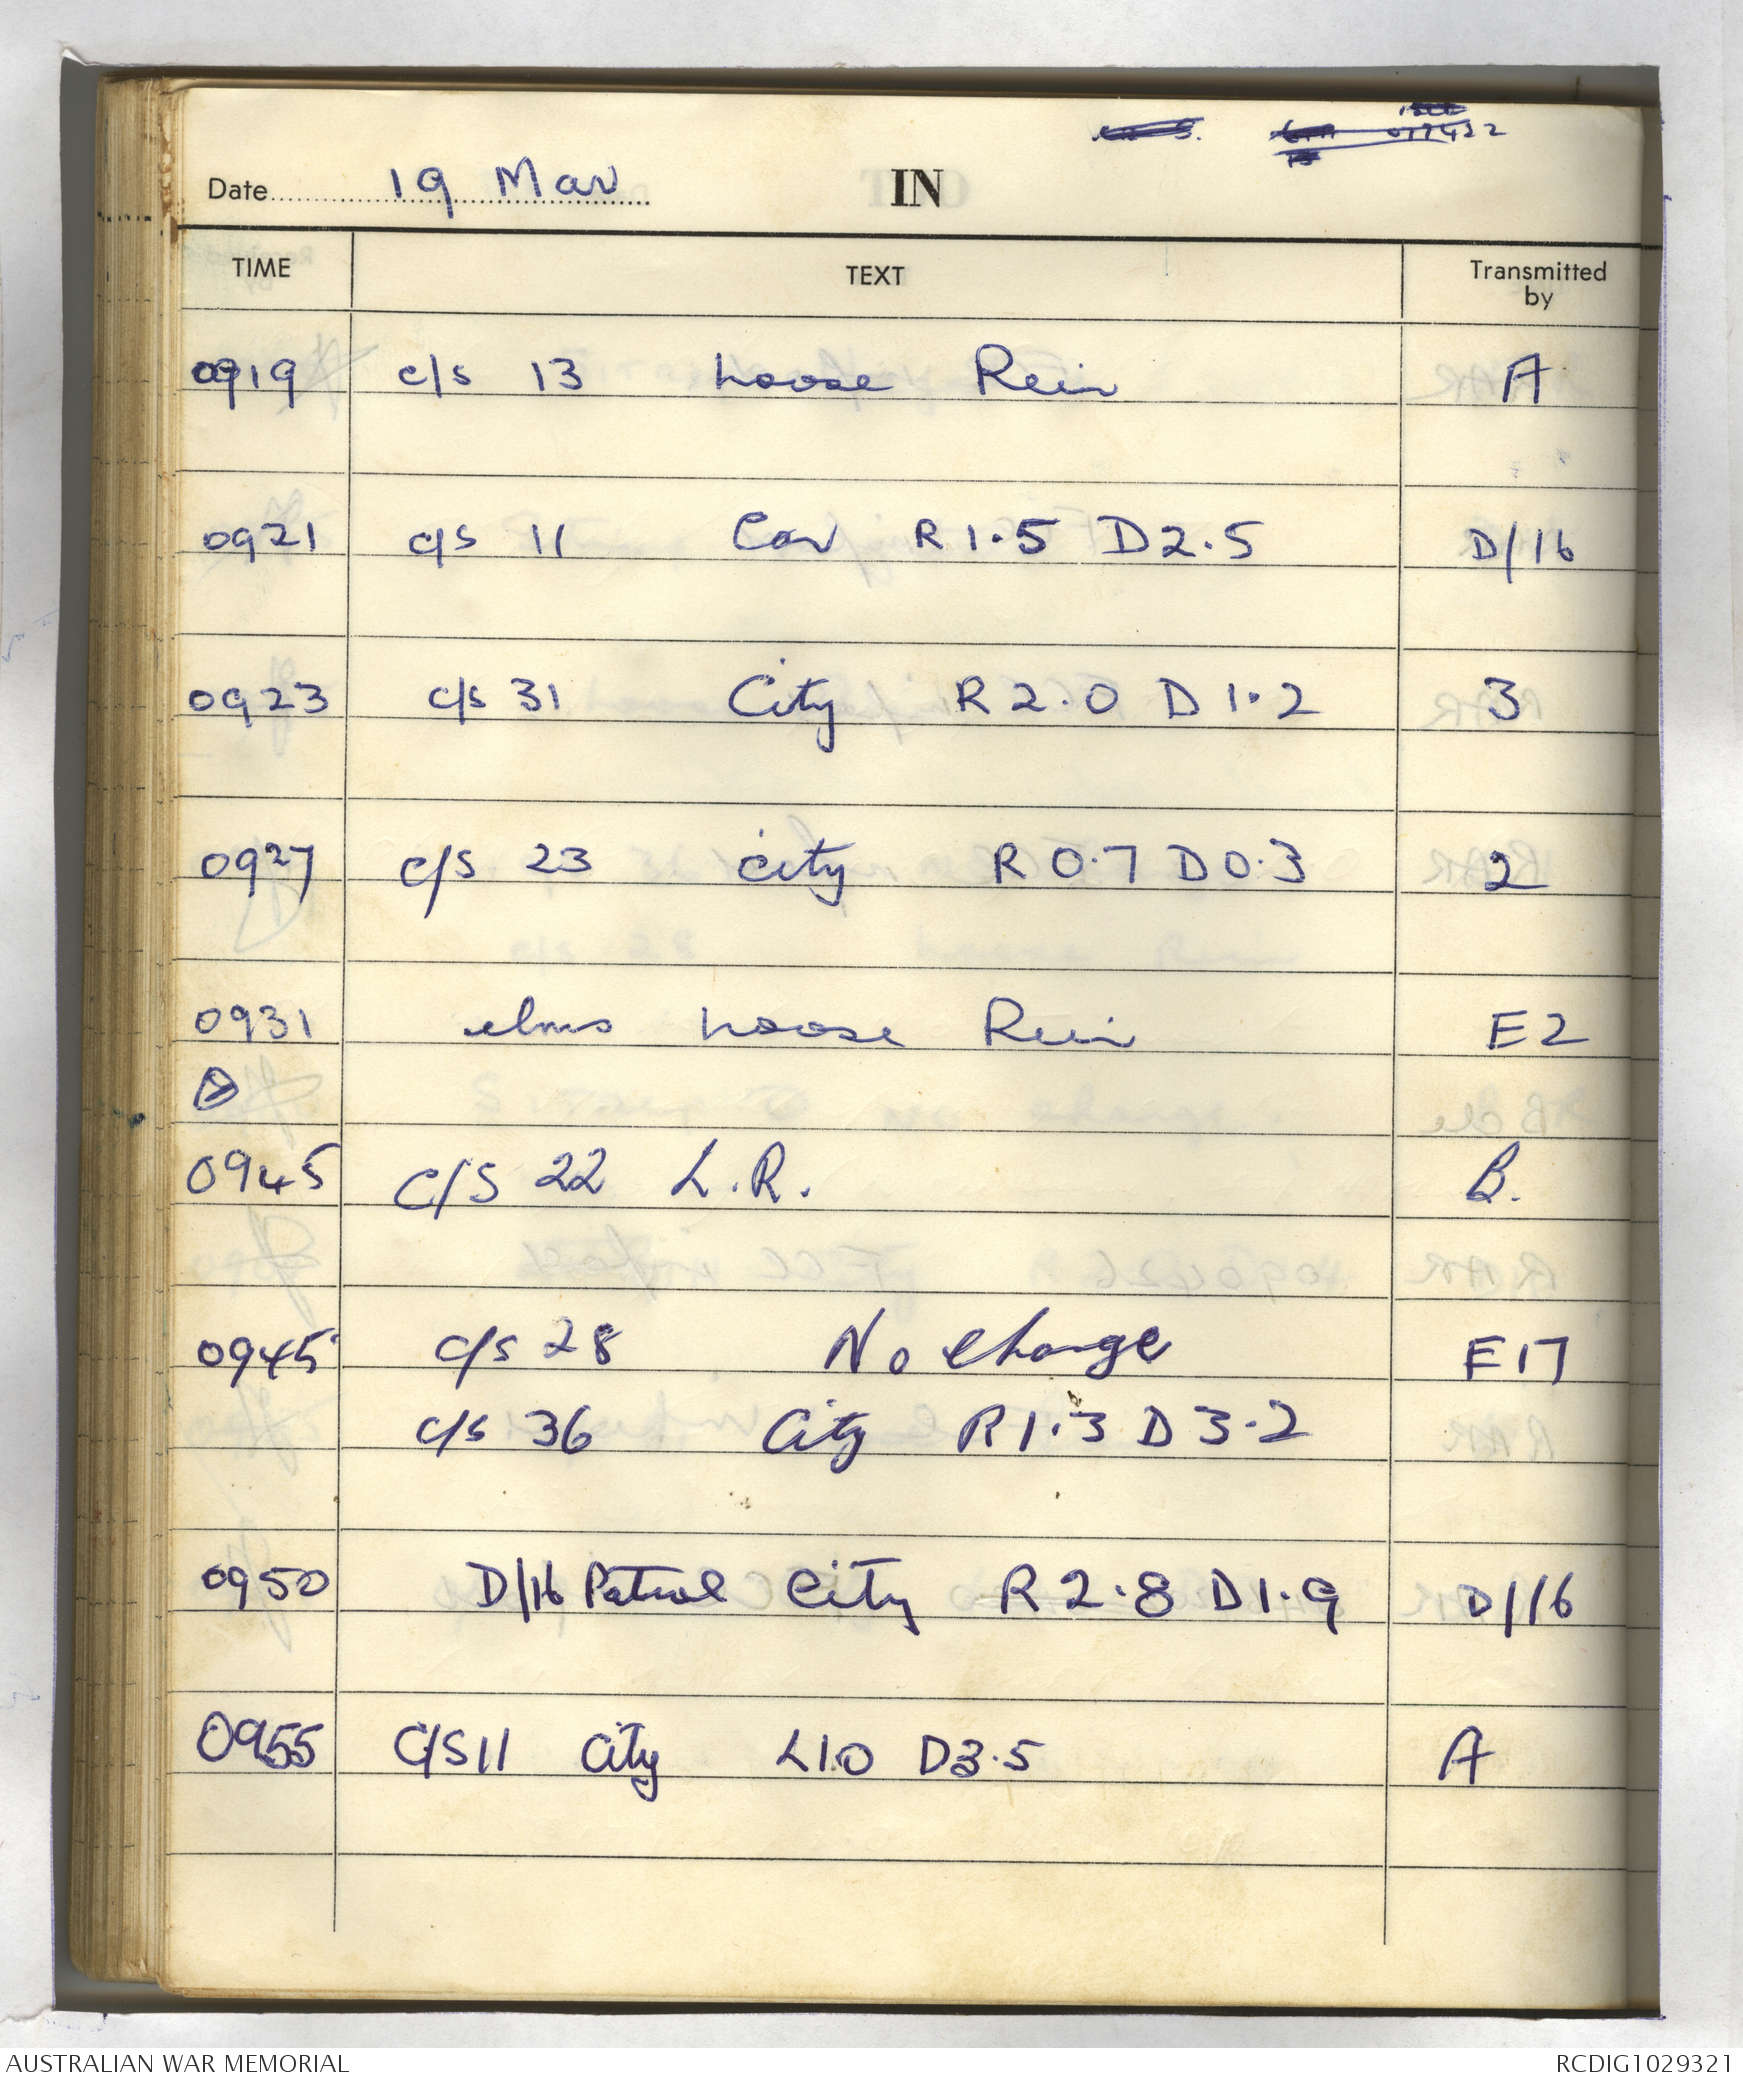 Date 19 Mar IN
TIME TEXT Transmitted by
0919 c/s 13 Loose Rein A
0921 c/s 11 Car R 1.5 D 2.5 D/16
0923 c/s 31 City R 2.0 D 1.2 3
0927 c/s 23 City R 0.7 D 0.3 2
0931 elms Loose Rein E2
0945 C/S 22 L.R. B.
0945 c/s 28 No change E17
c/s 36 City R 1.3 D 3.2
0950 D/16 Patrol City R 2.8 D 1.9 D/16
0955 C/S 11 City L 1.0 D 3.5 A
AUSTRALIAN WAR MEMORIAL RCDIG1029321